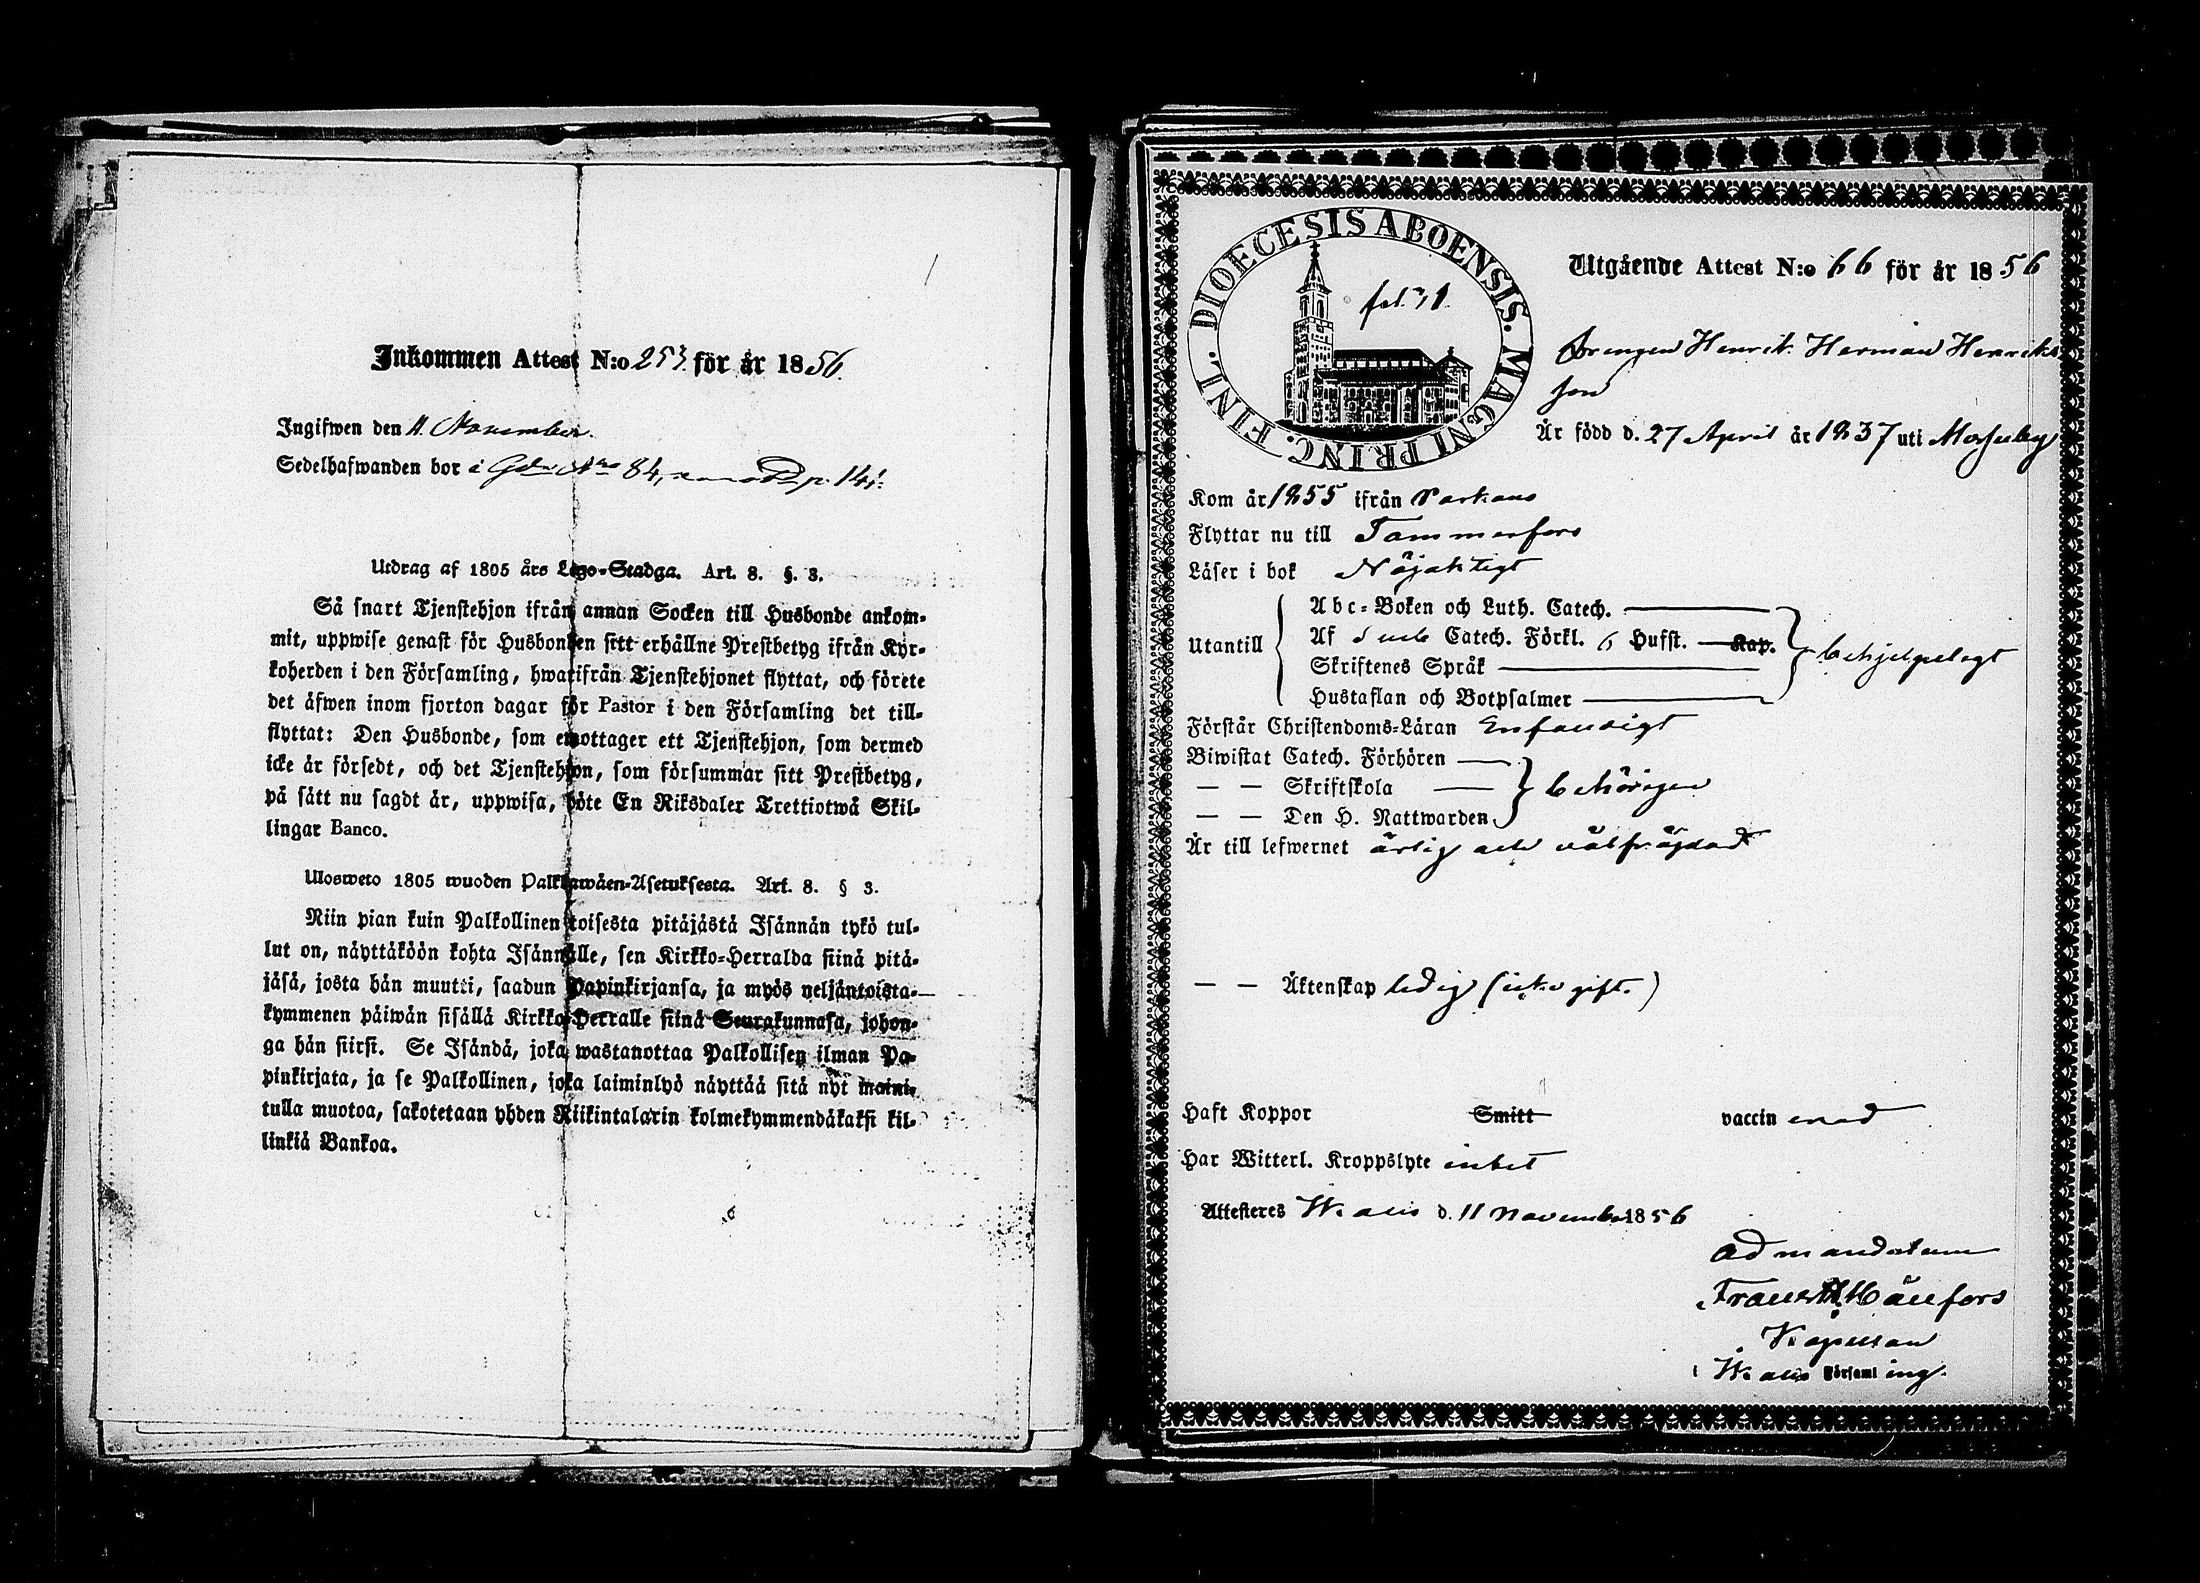 Inkommen Attest N:o 253 för år 1856.
Ingifwen den 11. November.
Sedelhafwanden bor i Gdn Nro 84, p. 141.
Utdrag af 1805 års Lego-Stadga. Art. 8. §. 3.
Så snart Tjenstehjon ifrån annan Socken till Husbonde ankom-
mit, uppwise genast för Husbonden sitt erhållne Prestbetyg ifrån Kyr-
koherden i den Församling, hwarifrån Tjenstehjonet flyttat, och förete
det äfwen inom fjorton dagar för Pastor i den Församling det till-
flyttat: Den Husbonde, som emottager ett Tjenstehjon, som dermed
icke är försedt, och det Tjenstehjon, som försummar sitt Prestbetyg,
på sätt nu sagdt är, uppwisa, böte En Riksdaler Trettiotwå Skil-
lingar Banco.
Ulosweto 1805 wuoden Palkkawäen-Asetuksesta. Art. 8. § 3.
Niin pian kuin Palkollinen toisesta pitäjästä Isännän tykö tul-
lut on, näyttäköön kohta Isännälle, sen Kirkko-Herralda siinä pitä-
jäsä, josta hän muutti, saadun Papinkirjansa, ja myös neljäntoista-
kymmenen päiwän sisällä Kirkko-Herralle siinä Seurakunnasa, johon-
ga hän siirsi. Se Isändä, joka wastanottaa Palkollisen ilman Pa-
pinkirjata, ja se Palkollinen, joka laiminlyö näyttää sitä nyt maini-
tulla muotoa, sakotetaan yhden Riikintalarin kolmekymmendäkaksi kil-
linkiä Bankoa.
DIOECESIS ABOENSIS. MAGNI PRINC. FINL.
fol. 71.
Utgående Attest N:o 66 för år 1856
Drengen Henrik Herman Henriks
son
Är född d. 27 April år 1837 uti Mosuby
Kom år 1855 ifrån Parkano
Flyttar nu till Tammerfors
Läser i bok Nöjaktigt
Utantill
Abc-Boken och Luth. Catech.
Af Catech. Förkl. 6 Hufst. Kap.
Skriftenes Språk
Hustaflan och Botpsalmer
behjelpeligt
Förstår Christendoms-Läran Enfaldigt
Biwistat Catech. Förhören
— — Skriftskola
— — Den H. Nattwarden
behörigen
Är till lefwernet ärlig och välfräjdad
— — Äktenskap ledig (icke gift.)
Haft Koppor Smitt vaccin erad
Har Witterl. Kroppslyte intet
Attesteres d. 11 November 1856
Ad mandatum
Kapellan
i Församling.